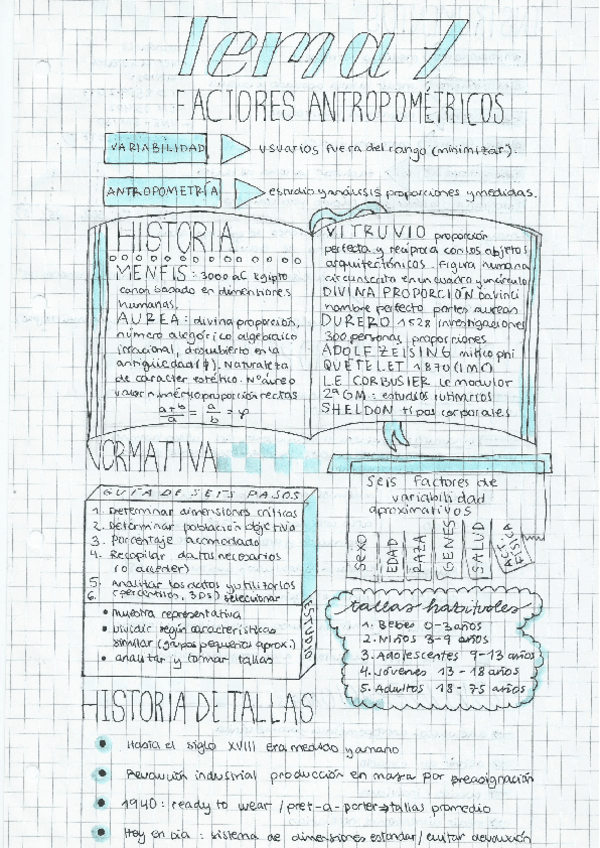 Tema 7
FACTORES ANTROPOMÉTRICOS
VARIABILIDAD usuarios fuera del rango (minimizar).
ANTROPOMETRÍA estudio y análisis proporciones y medidas.
HISTORIA
MENFIS: 3000 aC Egipto
canon basado en dimensiones
humanas.
AUREA: divina proporción,
número alegórico algebraico
irracional, descubierto en la
antigüedad (φ). Naturaleza
de carácter estético. Nº áureo
valor numérico proporción rectas
a+b/a = a/b = φ
VITRUVIO proporción
perfecta y recíproca con los objetos
arquitectónicos. Figura humana
circunscrita en un cuadro y un círculo
DIVINA PROPORCIÓN Da Vinci
hombre perfecto partes aureas
DURERO 1528 investigaciones
300 personas proporciones
ADOLF ZEISING mítico phi
QUETELET 1870 (IMC)
LE CORBUSIER Le modulor
2ª GM: estudios
SHELDON tipos corporales
NORMATIVA
GUÍA DE SEIS PASOS
1. Determinar dimensiones críticas
2. Determinar población objetivo
3. Porcentaje acomodado
4. Recopilar datos necesarios
(o acceder)
5. Analizar los datos y utilizarlos
6. (percentiles, 3Ds) seleccionar
ESTUDIO
• muestra representativa
• dividir según características
similar (grupos pequeños aprox.)
• analizar y formar tallas
Seis factores de
variabilidad
aproximativos
SEXO
EDAD
RAZA
GENES
SALUD
ACT. FÍSICA
tallas habituales
1. Bebes 0-3 años
2. Niños 3-9 años
3. Adolescentes 9-13 años
4. Jóvenes 13-18 años
5. Adultos 18-75 años
HISTORIA DE TALLAS
• Hasta el siglo XVIII era medido y a mano
• Revolución industrial producción en masa por
• 1940: ready to wear / pret-a-porter → tallas promedio
• Hoy en día: sistema de dimensiones estándar / evitar devolución